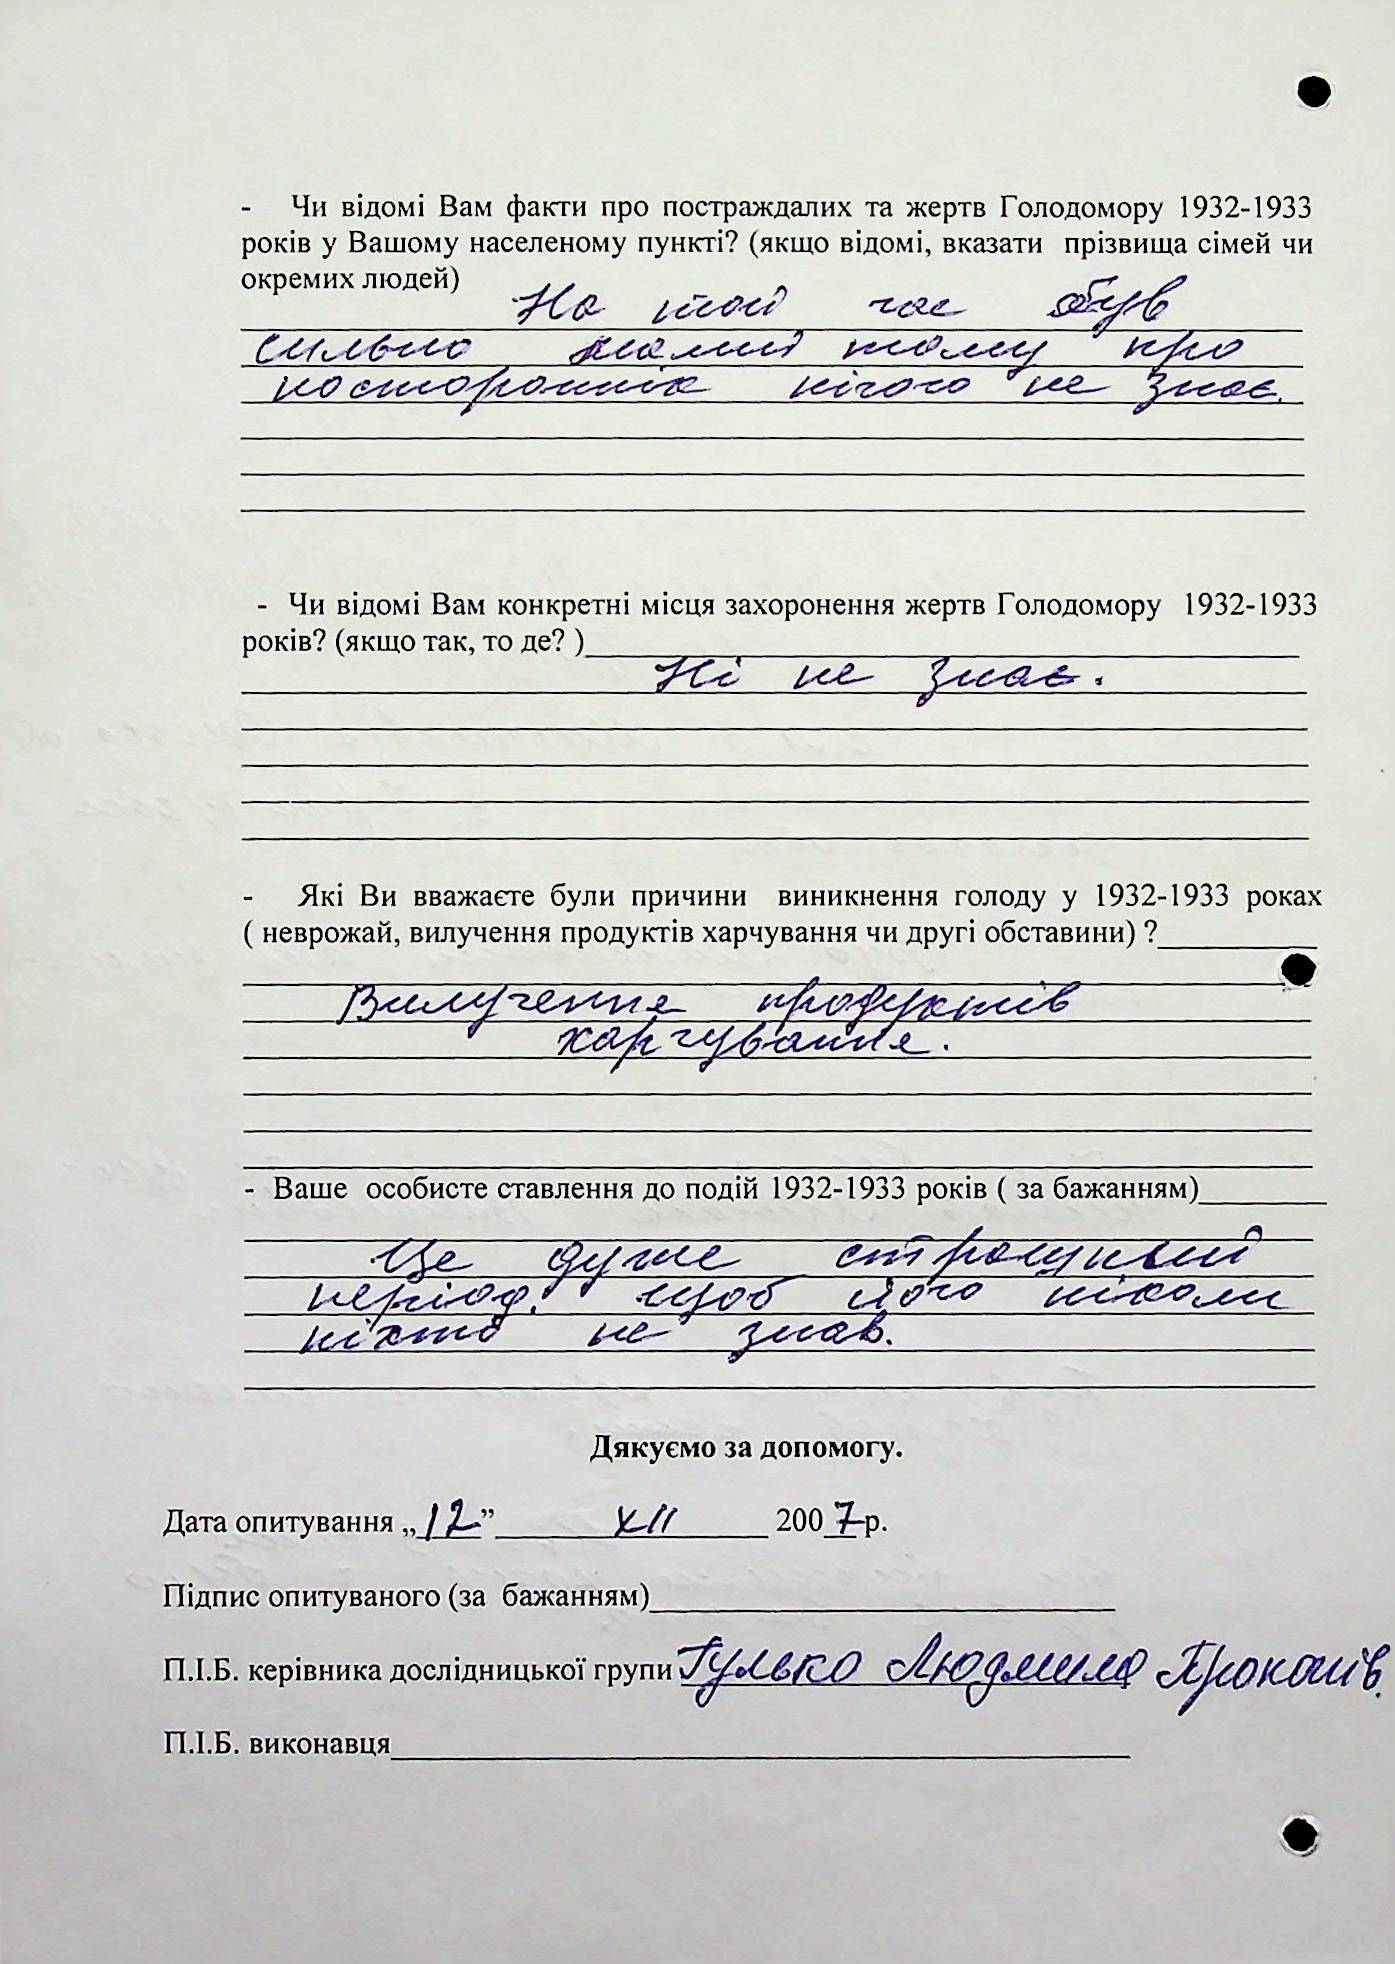 - Чи відомі Вам факти про постраждалих та жертв Голодомору 1932-1933
років у Вашому населеному пункті? (якщо відомі, вказати прізвища сімей чи
окремих людей)
На той час був
сильно малий тому про
посторонніх нічого не знає.
- Чи відомі Вам конкретні місця захоронення жертв Голодомору 1932-1933
років? (якщо так, то де? )
Ні не знає.
- Які Ви вважаєте були причини виникнення голоду у 1932-1933 роках
( неврожай, вилучення продуктів харчування чи другі обставини) ?
Вилучення продуктів
харчування.
- Ваше особисте ставлення до подій 1932-1933 років ( за бажанням)
Це дуже страшний
період. щоб його ніколи
ніхто не знав.
Дякуємо за допомогу.
Дата опитування „12” XII 2007 р.
Підпис опитуваного (за бажанням)
П.І.Б. керівника дослідницької групи Гулько Людмила
П.І.Б. виконавця